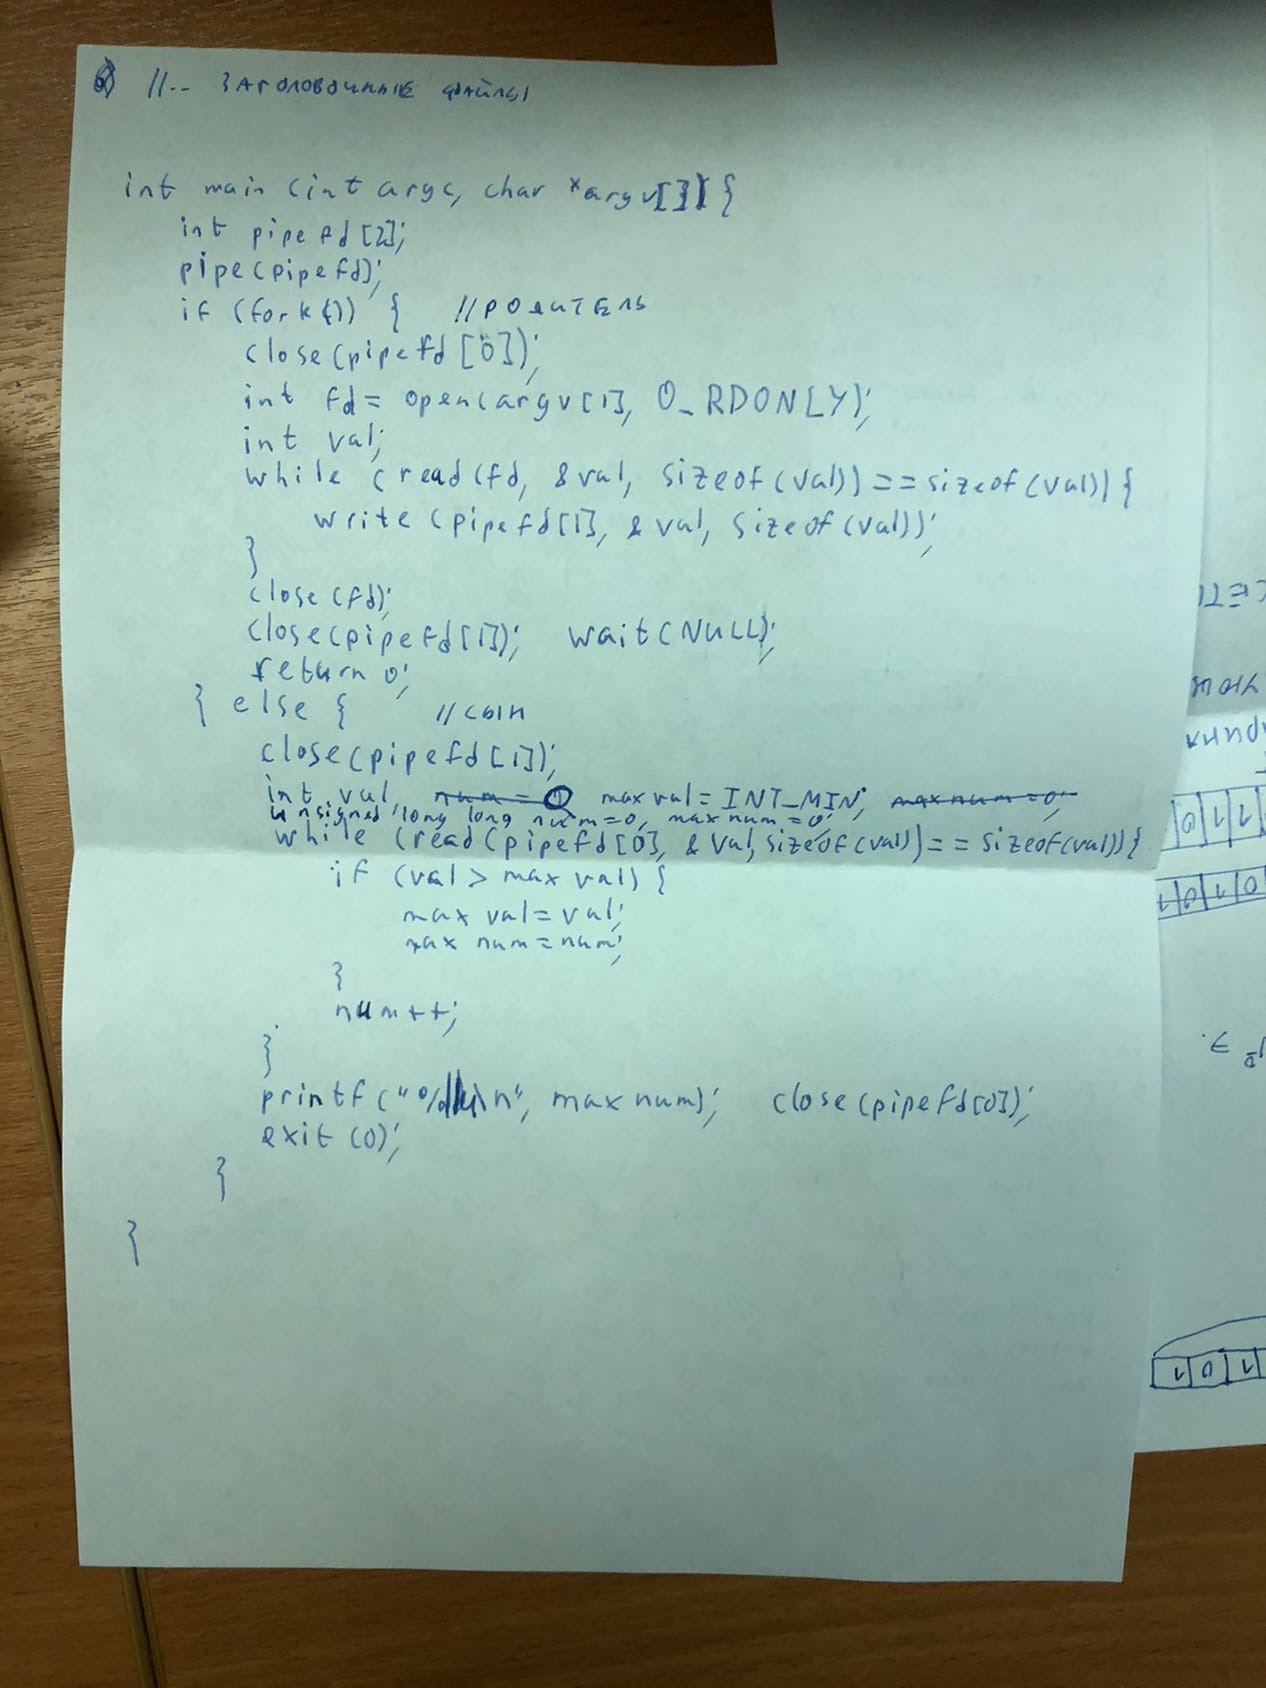 6) //.. ЗАГОЛОВОЧНЫЕ ФАЙЛЫ
int main (int argc, char *argv[]) {
int pipefd[2];
pipe(pipefd);
if (fork()) { // РОДИТЕЛЬ
close(pipefd[0]);
int fd = open(argv[1], O_RDONLY);
int val;
while (read(fd, &val, sizeof(val)) == sizeof(val)) {
write (pipefd[1], &val, sizeof(val));
}
close(fd);
close(pipefd[1]); wait(NULL);
return 0;
} else { // СЫН
close(pipefd[1]);
int val, num = 0 maxval = INT_MIN; maxnum = 0;
unsigned long long num=0, maxnum=0;
while (read(pipefd[0], &val, sizeof(val)) == sizeof(val)) {
if (val > maxval) {
maxval = val;
maxnum = num;
}
num++;
}
printf("%llu\n", maxnum); close(pipefd[0]);
exit(0);
}
}